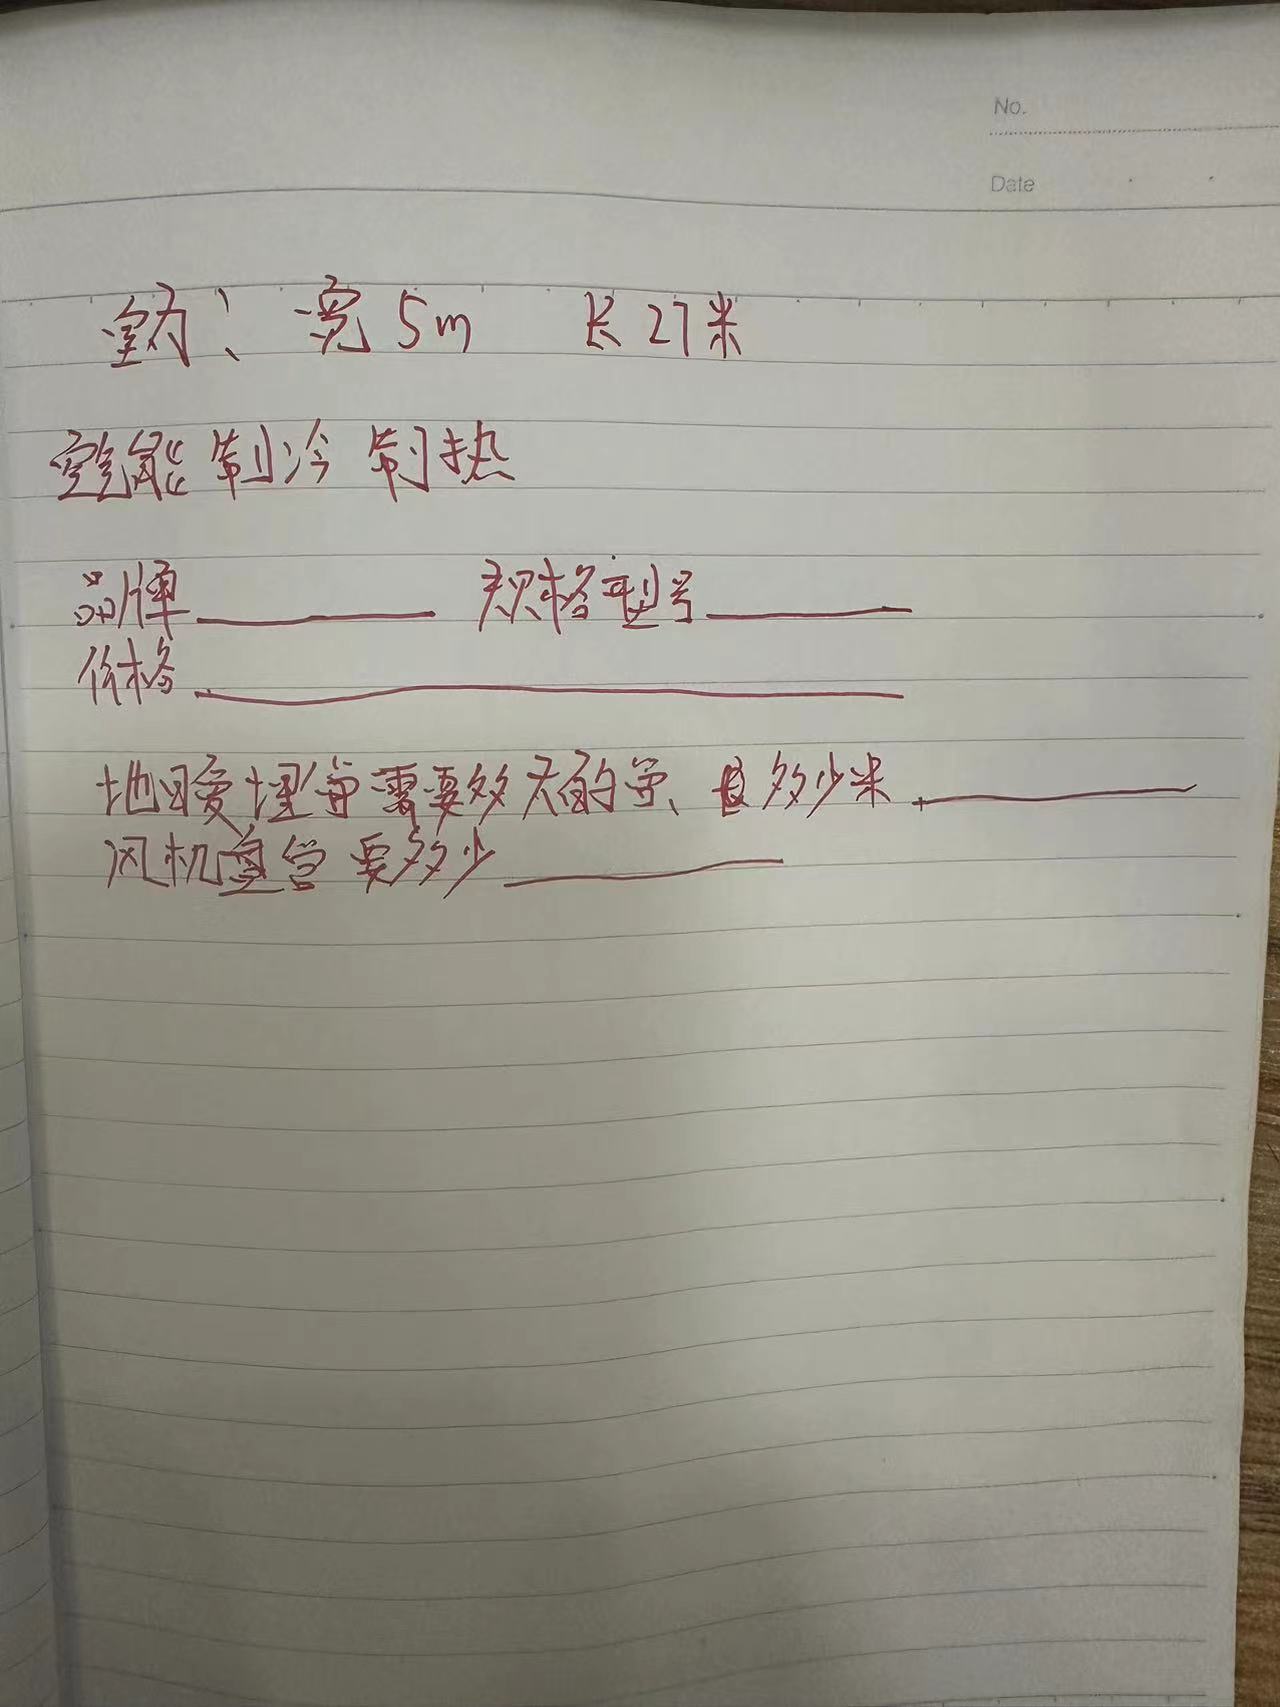 No.
Date
室内：宽5m 长27米
空气能制冷制热
品牌 规格型号
价格
地暖埋管需要多大的管、且多少米
风机盘管要多少